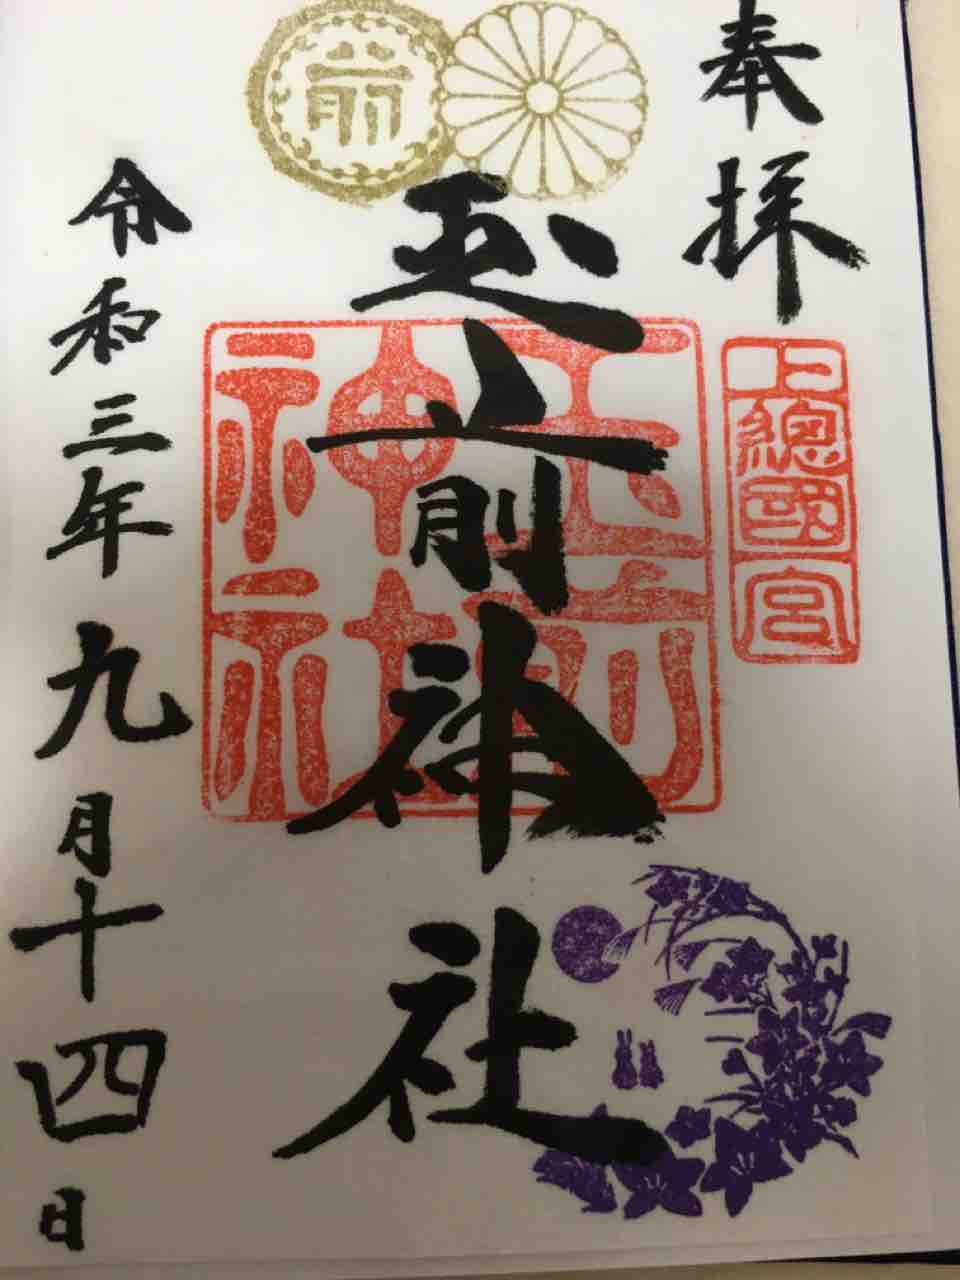 奉拝
上總國一宮
玉前神社
玉前神社
前
令和三年九月十四日